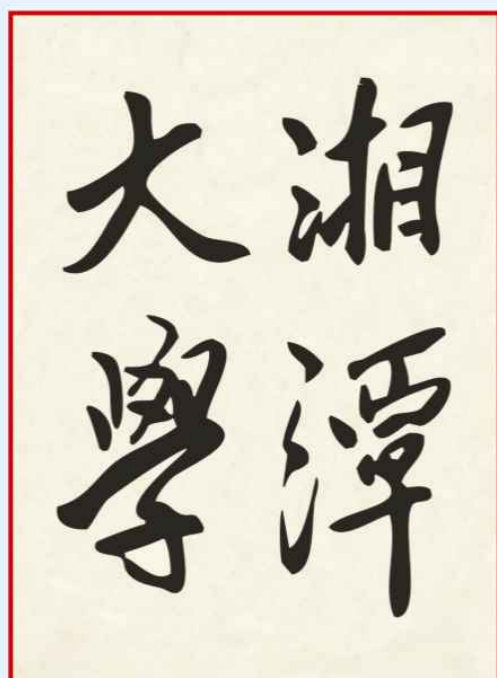 湘潭
大學